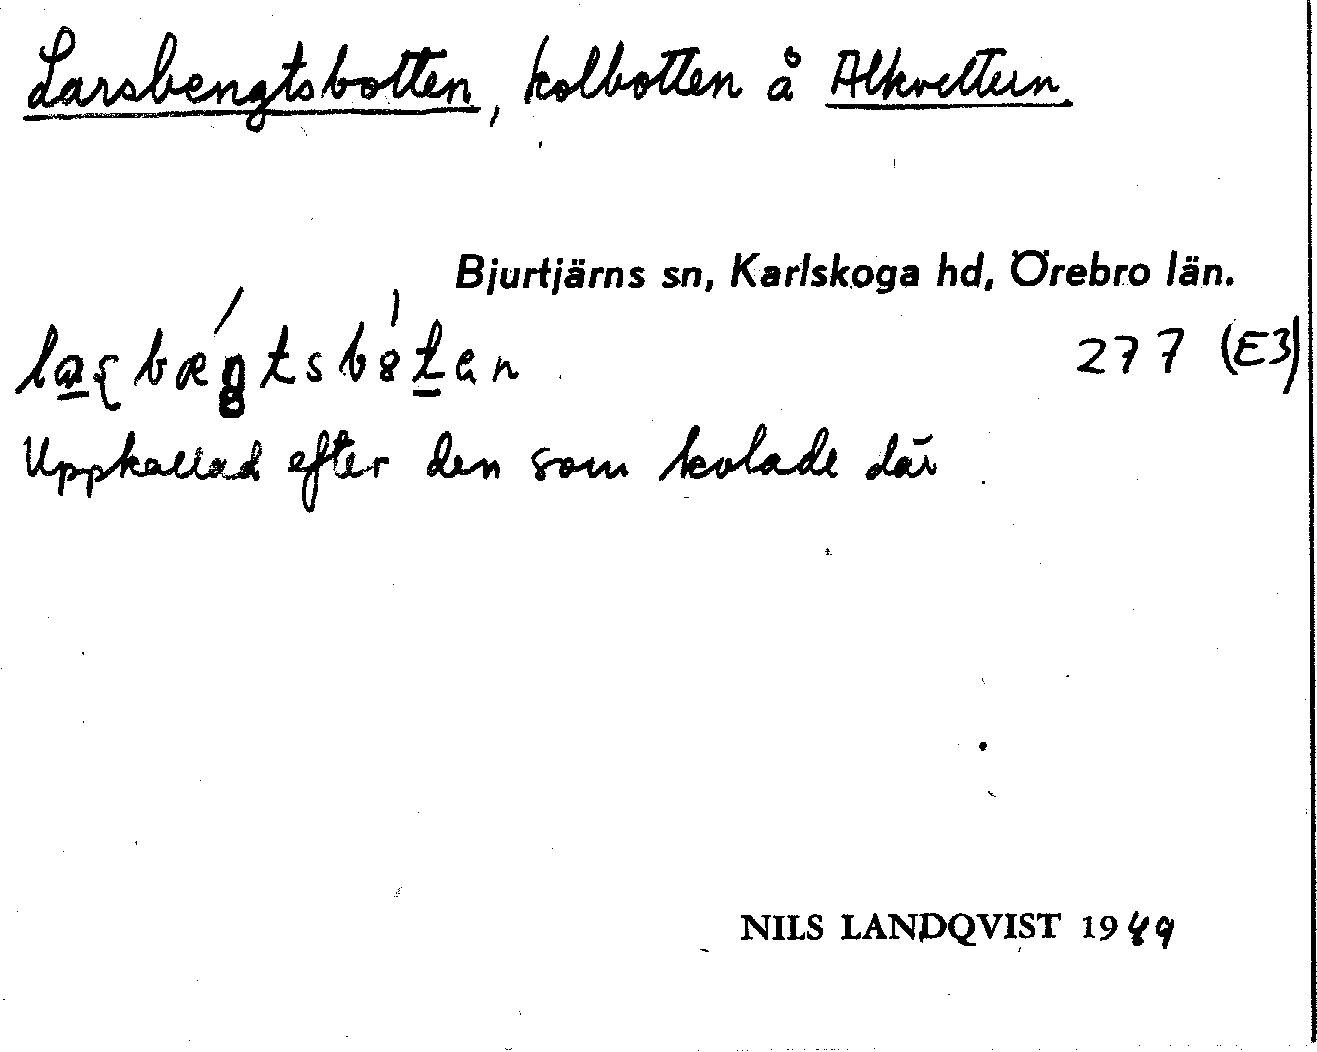 Larsbengtsbotten, kolbotten å Alkvettern.
Bjurtjärns sn, Karlskoga hd, Örebro län.
277 (E3)
Uppkallad efter den som kolade där
NILS LANDQVIST 1949